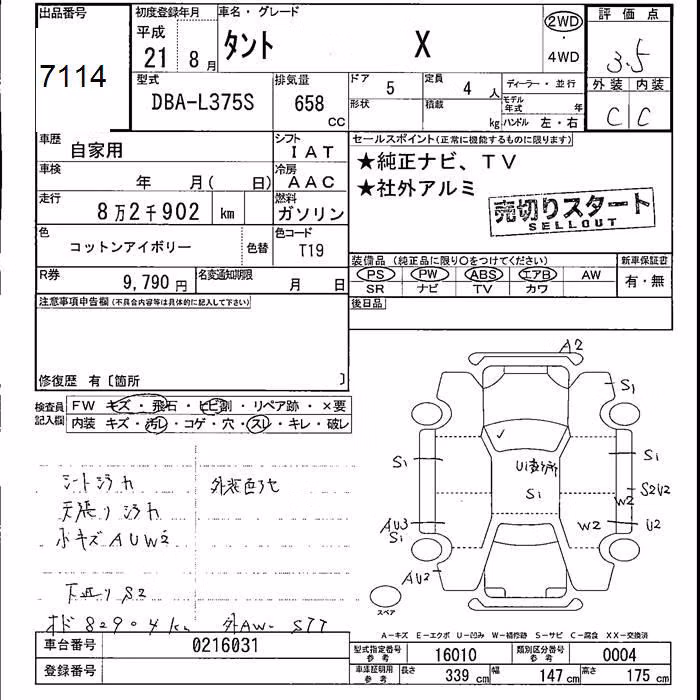 出品番号
7114
初度登録年月
平成
21 8月
車名・グレード
タント X
2WD
・
4WD
評価点
3.5
外装 内装
C C
型式
DBA-L375S
排気量
658
CC
ドア
5
定員
4 人
ディーラー・並行
形状
積載
kg
モデル年式 年
ハンドル 左・右
車歴
自家用
シフト
IAT
車検
年 月( 日)
冷房
AAC
走行
8万2千902 km
燃料
ガソリン
色
コットンアイボリー
色替
色コード
T19
R券
9,790円
名変通知期限
月 日
セールスポイント(正常に機能するものに限ります)
★純正ナビ、TV
★社外アルミ
売切りスタート
SELLOUT
装備品 (純正品に限り○をつけてください)
PS PW ABS エアB AW
SR ナビ TV カワ
新車保証書
有・無
後日品
注意事項申告欄(不具合内容等は具体的に記入して下さい)
修復歴 有〔箇所 〕
検査員記入欄
FW キズ・飛石・ヒビ割・リペア跡・×要
内装 キズ・汚レ・コゲ・穴・スレ・キレ・破レ
シートシラカ
外装色アセ
天張りシラカ
小キズAUW2
下廻りS2
オド82904km
外AW-STT
A2
S1
S1
U1多数所
S1
S1
S2U2
W2
AU3
S1
W2
U2
AU2
スペア
A-キズ E-エクボ U-凹み W-補修跡 S-サビ C-腐食 XX-交換済
車台番号
0216031
登録番号
型式指定番号
参考
16010
類別区分番号
参考
0004
車庫証明用
参考
長さ
339 cm
幅
147 cm
高さ
175 cm